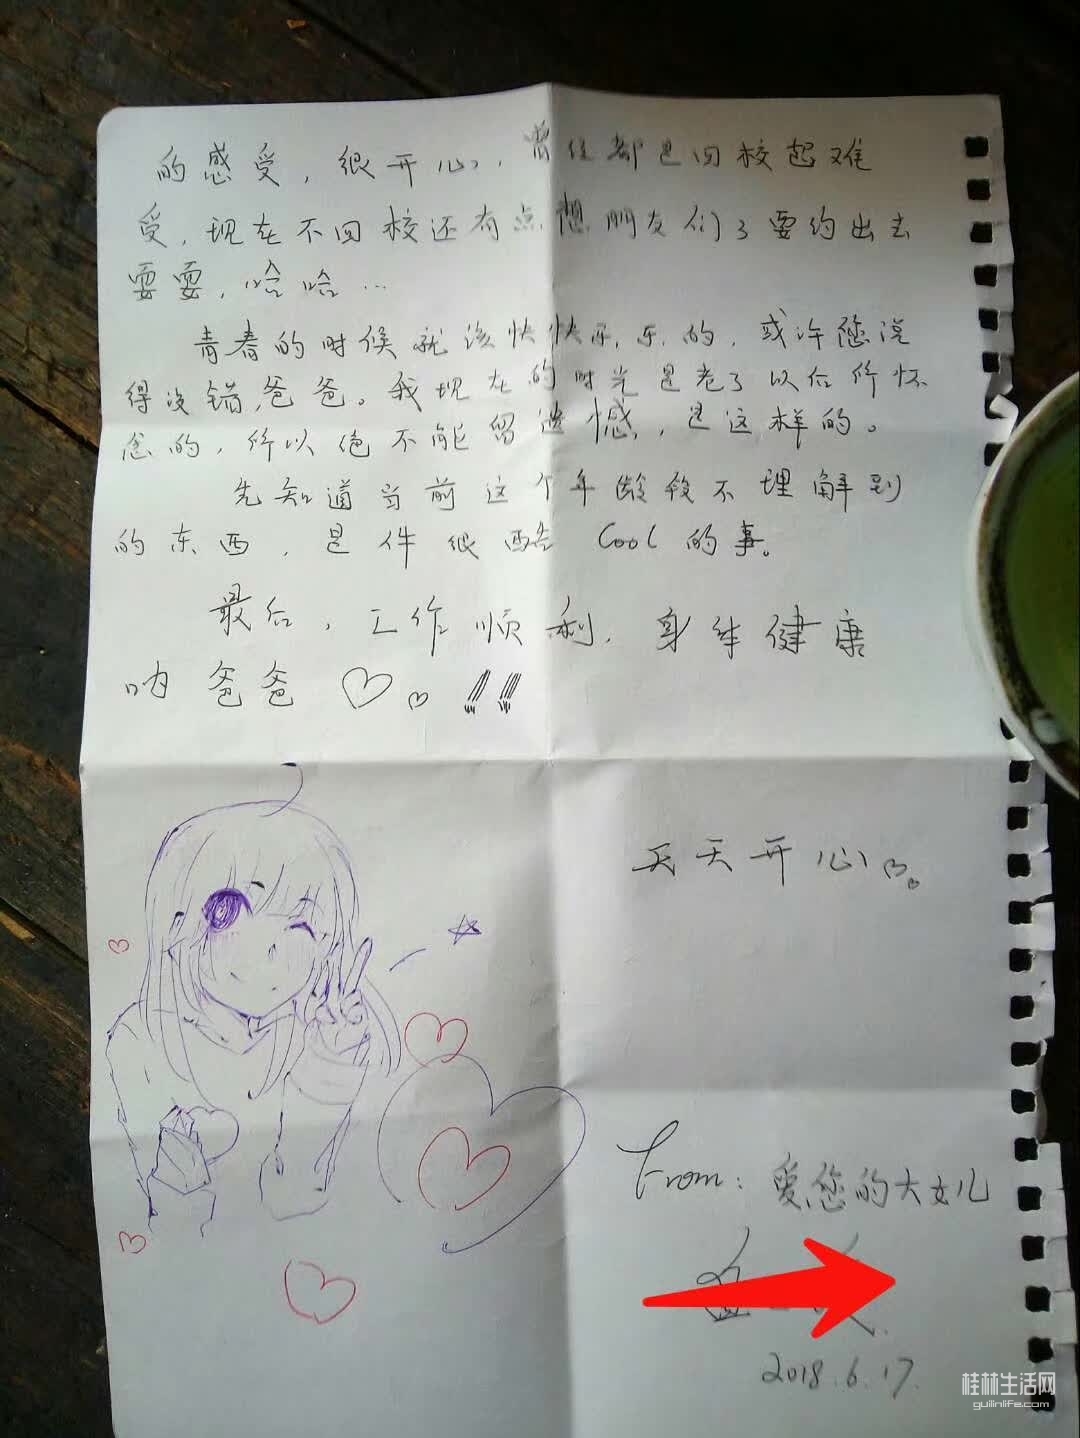 的感受，很开心，曾经都是回校起难
受，现在不回校还有点想朋友们了要约出去
耍耍，哈哈…
青春的时候就该快快乐乐的，或许您说
得没错，爸爸。我现在的时光是老了以后所怀
念的，所以绝不能留遗憾，是这样的。
先知道当前这个年龄段不理解到
的东西，是件很酷Cool的事。
最后，工作顺利，身体健康
呐爸爸♡。!!
天天开心
From：爱您的大女儿
2018.6.17.
桂林生活网
guilinlife.com